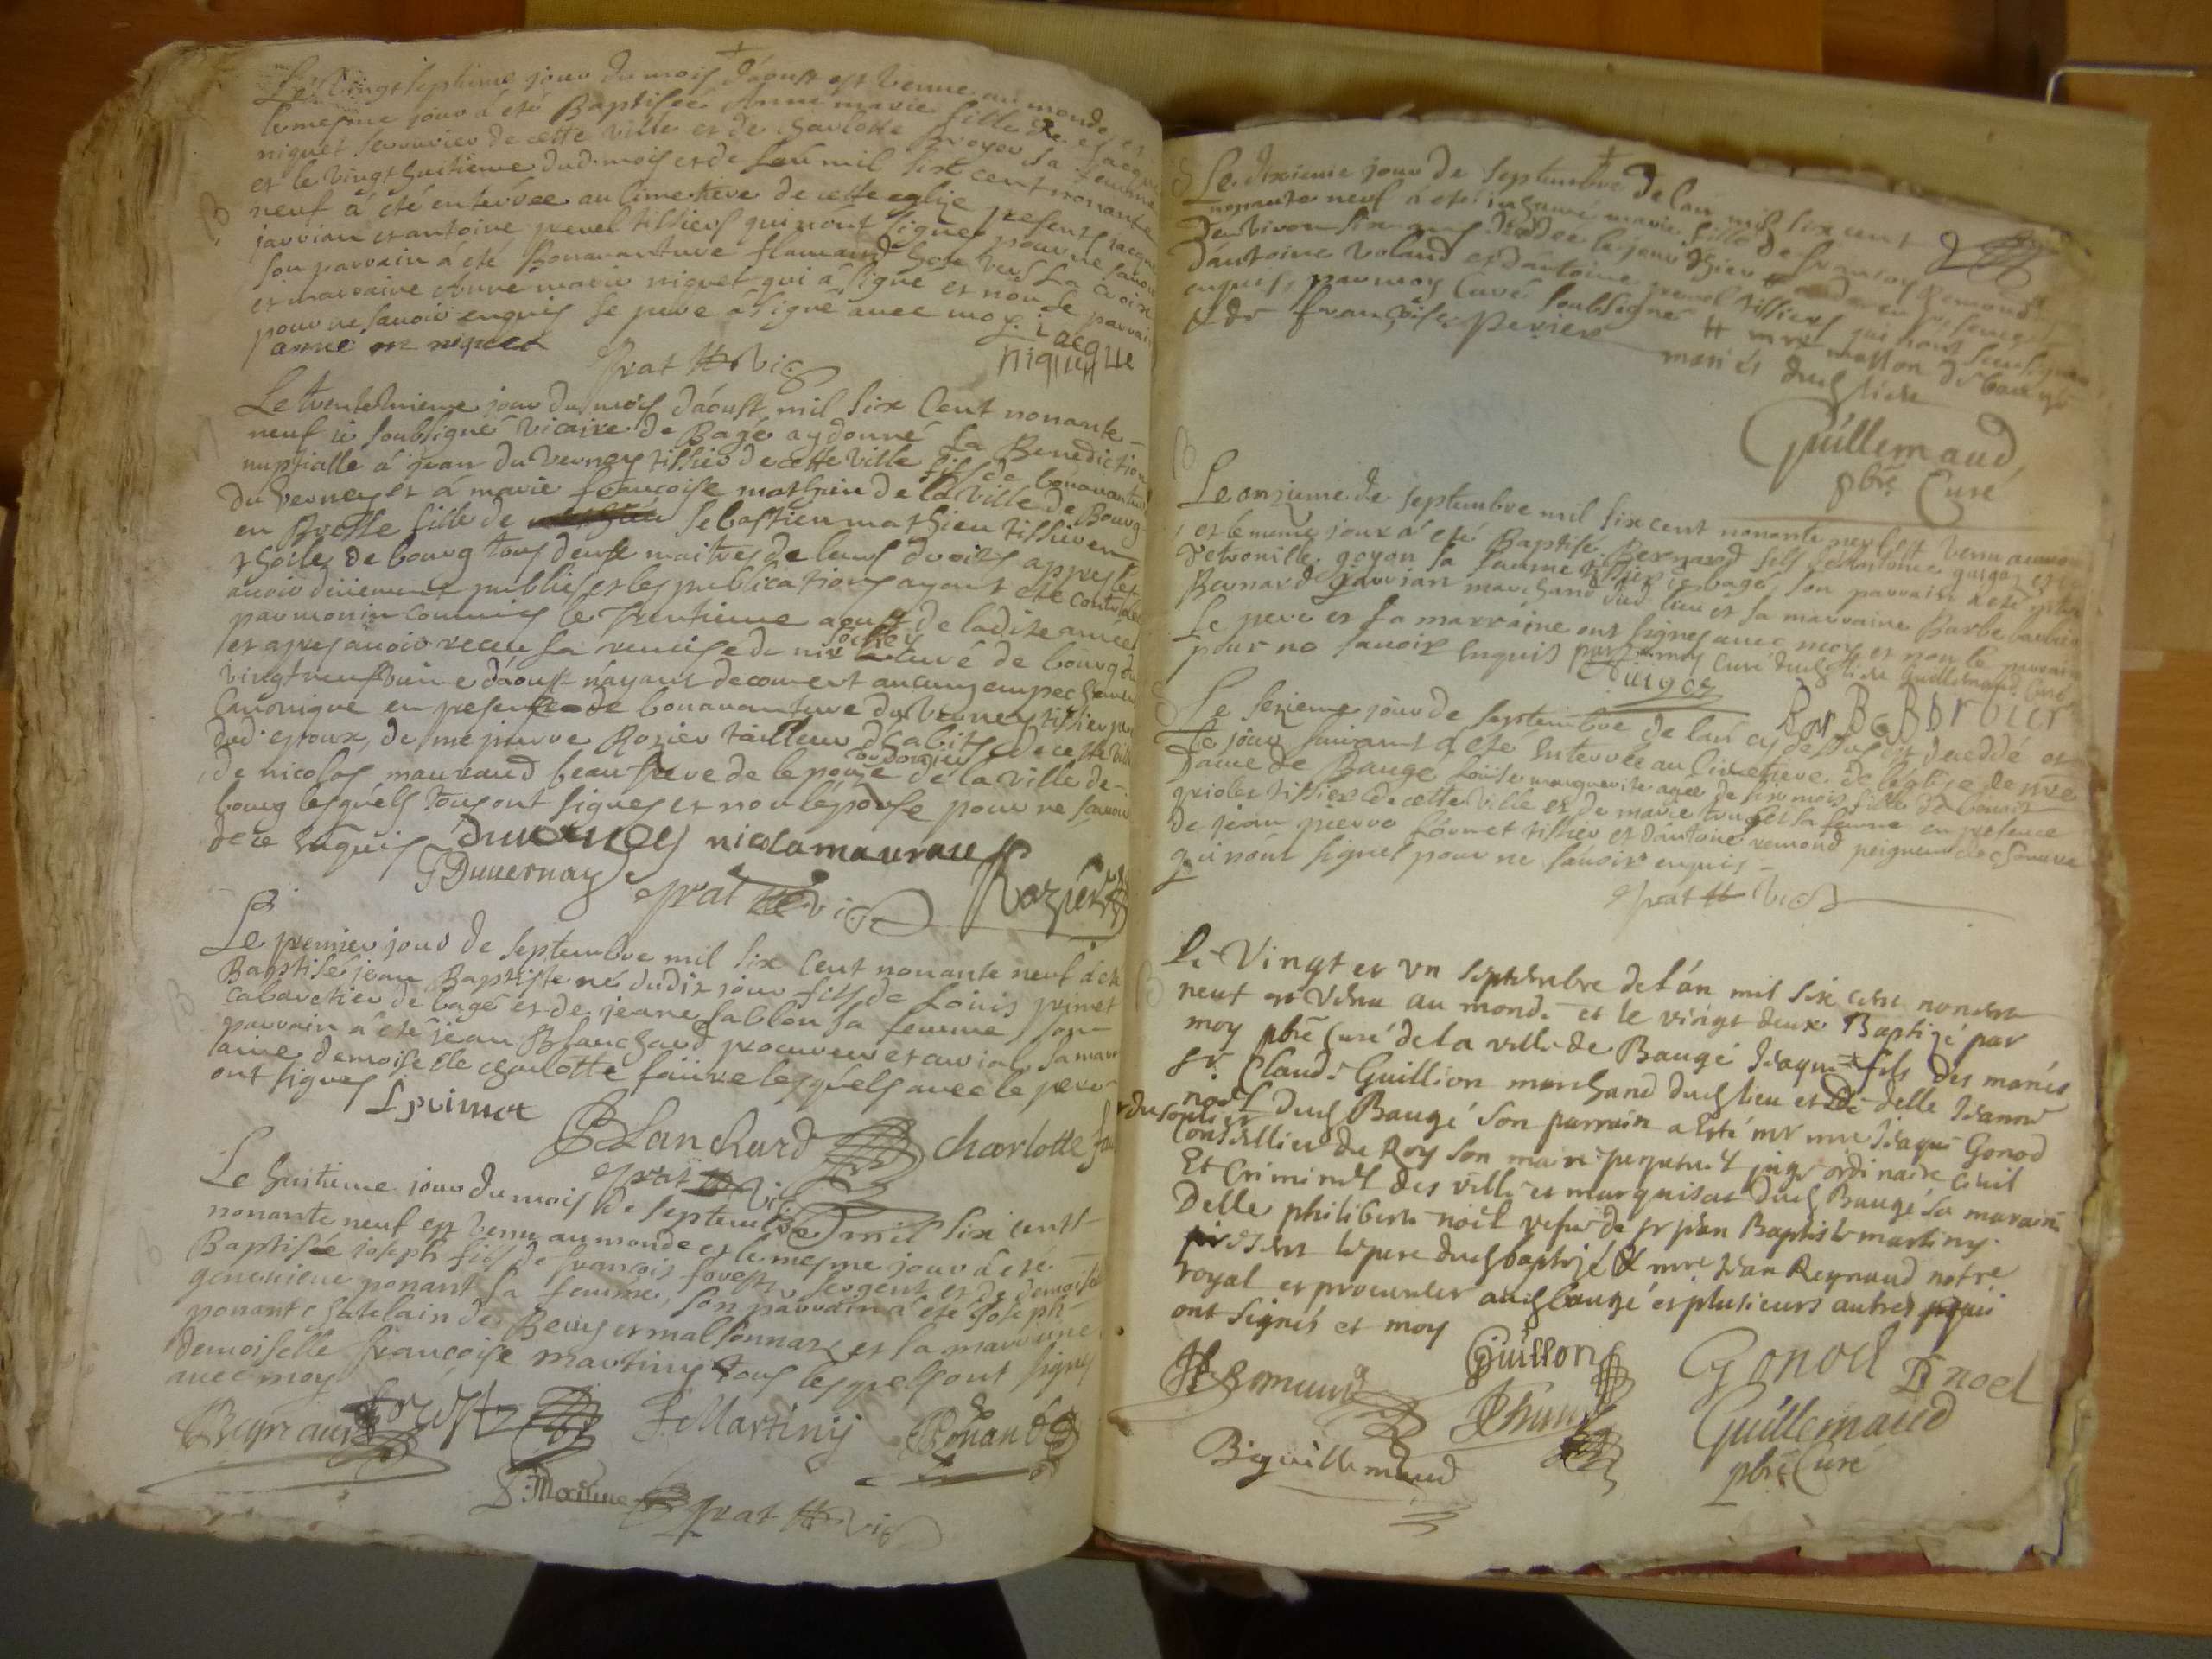 Le vingt septième jour du mois d'aoust est venue au monde et
le mesme jour a été Baptisée Anne marie fille de jacque
niquet serrurier de cette ville et de charlotte Broyer sa femme
et le vingt huitieme dud. mois et de l'an mil six cent nonante
neuf a été enterrée au cimetiere de cette eglise presents jacque
jarvian et antoine prevel tissiers qui n'ont signés pour ne savoir
son parrain a été Bonavanture flamand hoste vers la croix
et marraine anne marie niquet qui a signé et non le parrain
pour ne savoir enquis le pere a signé avec moy. iacque
anne m niquet niquet
Prat Vic
Le trente unieme jour du mois d'aoust mil six Cent nonante
neuf je soubsigné vicaire de Bagé ay donné la Benediction
nuptialle à jean du verney tissier de cette ville fils de bonavanture
du verney et à marie françoise mathieu de la ville de Bourg
en Bresse fille de Sebastien mathieu tissier en
thoile de bourg tous deux maitres de leurs droits appres les
avoir deüement publiés et les publications ayant été controlées
par monin commis le Trentieme aoust de ladite année
et apres avoir receu la remise de mr curé de bourg du
vingt neufvieme d'aoust n'ayant decouvert aucun empechement
Canonique en presence de bonavanture du verney tissier pere
dud. espoux, de me pierre Rozier tailleur d'habits de cette ville
de nicolas mauraud beaufrere de l'epouse de la ville de
bourg lesquels tous ont signés et non l'épouse pour ne savoir
de ce enquis Duverney nicola mauraud
Duvernay Prat vic Rozier
Le premier jour de septembre mil six Cent nonante neuf a été
Baptisé jean Baptiste né dudit jour fils de Louis primet
cabaretier de bagé et de jeane sablon sa femme, son
parrain a été jean Blanchard procureur et curial, sa marr
aine demoiselle charlotte faivre lesquels avec le pere
ont signés L primet
Blanchard charlotte
Prat Vic
Le huitieme jour du mois de septembre mil six cent
nonante neuf est venu au monde et le mesme jour a été
Baptisée joseph fils de françois forest sergent et de demoiselle
genevieve ponant sa femme, son parrain a été joseph
ponant chatelain de Beuy et malsonnas et la marraine
demoiselle françoise martiny tous lesquels ont signés
avec moy
Reynaud forest f Martiny Ponant
Prat vic
Le dixieme jour de septembre de l'an mil six cent
nonante neuf a été inhumé marie fille de françois Remond
d'environ six ans decedée le jour d'hier en presence
d'antoine voland et d'antoine prevel tissiers qui n'ont sceu signer
enquis, par moy Curé soubsigné # mre masson de baugé
& de françoise Perier mariés dud lieu
Guillemaud,
pbre Curé
Le onzieme de septembre mil six cent nonante neuf est venu au monde
et le meme jour a été Baptisé Bernard fils d'Antoine guigoz et
petronille goyon sa femme tissier de bagé, son parrain a été
Bernard jarvian marchand dud. lieu et sa marraine Barbe barbier
Le pere et la marraine ont signés avec moy et non le parrain
pour ne savoir Enquis par moy curé dud lieu Guillemaud Curé
Guigoz BarBe BarBier
Le sezieme jour de septembre de l'an cy dessus est decedée et
le jour suivant a été Enterrée au cimetiere de l'église de nre
Dame de Baugé Louise marguerite agée de six mois fille de benoit
griolet tissier de cette ville et de marie truget sa femme en presence
de jean pierre fornet tissier et d'antoine remond peigneur de chanvre
qui n'ont signés pour ne sávoir enquis
Prat Vic
Le Vingt et un septembre de l'án mil six cent nonante
neuf est venu au monde et le vingt deux Baptizé par
moy pbre Curé de la ville de Baugé Jaque fils des mariés
Sr. Claude Guillion marchand dud lieu et de delle Jeanne
noel dud Baugé son parrain a Esté mr mre Jaque Gonod
Conseiller du Roy son maire perpetuel juge ordinaire Civil
Et Criminel des ville et marquisat dud Baugé sa maraine
Delle philiberte noël vefve de sr jean Baptiste martiny
present le pere dud baptizé & mre Jean Reynaud notre
royal et procureur aud baugé et plusieurs autres qui
ont signés et moy
Guillon Gonod P noel
Guillemaud
Biguillemaud pbre Curé